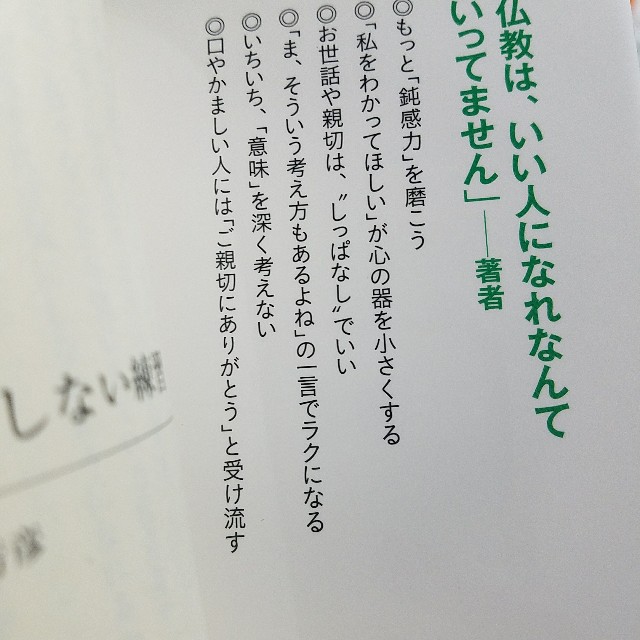 仏教は、いい人になれなんて
いってません」——著者
◎もっと「鈍感力」を磨こう
◎「私をわかってほしい」が心の器を小さくする
◎お世話や親切は、〝しっぱなし〟でいい
◎「ま、そういう考え方もあるよね」の一言でラクになる
◎いちいち、「意味」を深く考えない
◎口やかましい人には「ご親切にありがとう」と受け流す
しない練習